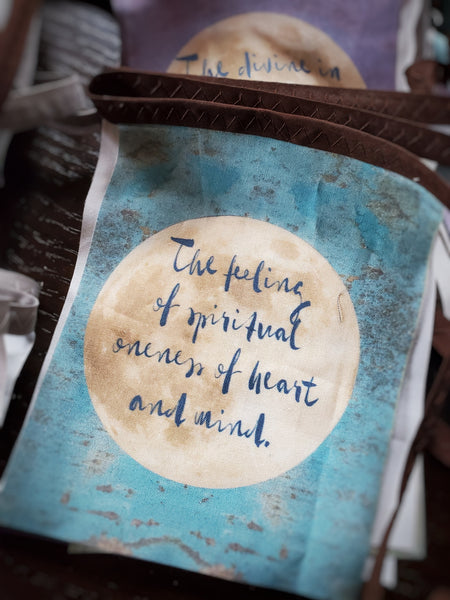 The divine in
The feeling
of spiritual
oneness of heart
and mind.